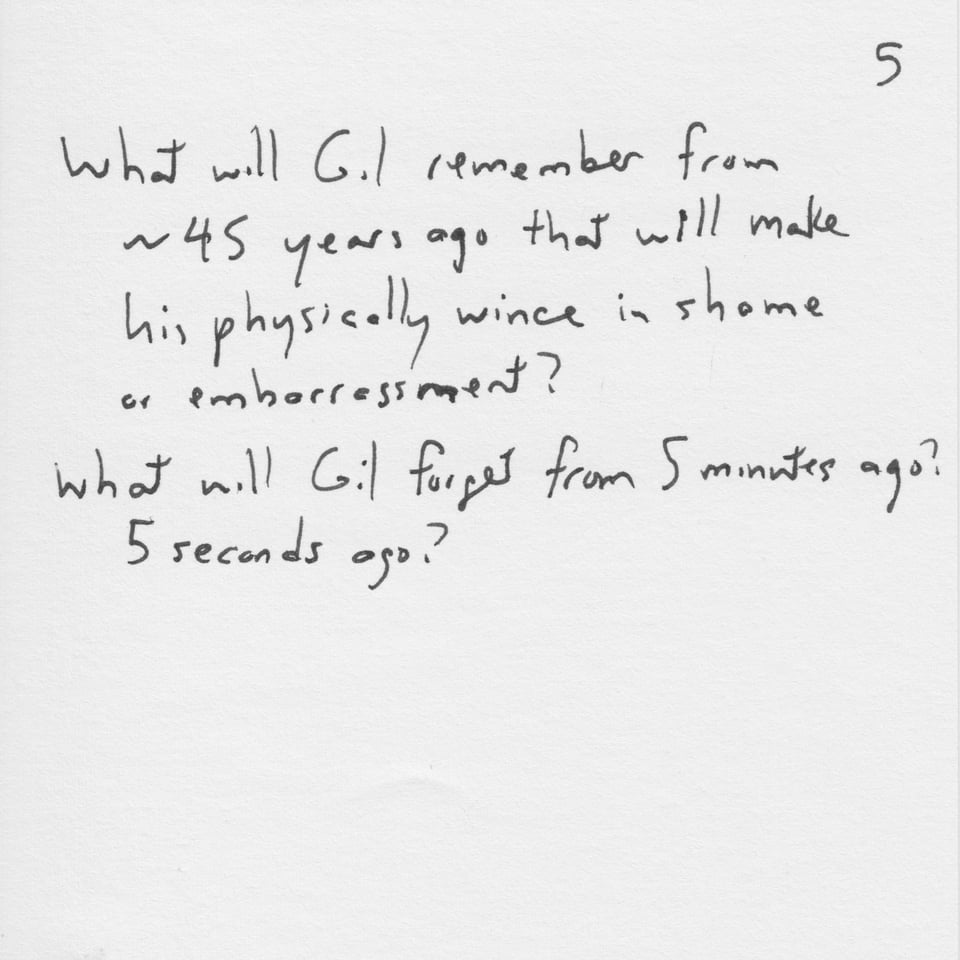 5
What will Gil remember from
~45 years ago that will make
his physically wince in shame
or embarressment?
What will Gil forget from 5 minutes ago?
5 seconds ago?